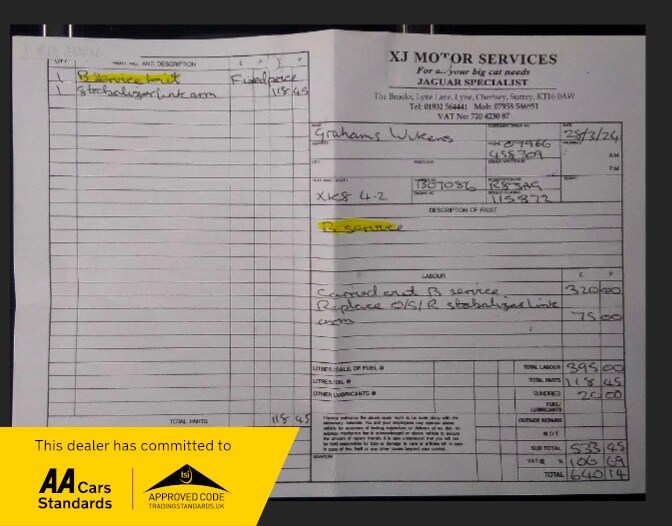 QTY. PART No. AND DESCRIPTION £ P £ P
1 B service unit Fixed price
1 Stabalizer link arm 118 45
TOTAL PARTS 118 45
XJ MOTOR SERVICES
For a../your big cat needs
JAGUAR SPECIALIST
The Brooks, Lyne Lane, Lyne, Chertsey, Surrey, KT16 0AW
Tel: 01932 564441 Mob: 07958 546951
VAT No: 720 4230 87
Grahams Wikens 28/3/24
07966
458309
A.M.
P.M.
XK8 4-2 R83AG
115872
DESCRIPTION OF FAULT
B service
LABOUR £ P
Carried out B service 320 00
Replace O/S/R stabalizer link
arm 75 00
LITRES/GALS. OF FUEL @ TOTAL LABOUR 395 00
LITRES/OIL @ TOTAL PARTS 118 45
OTHER LUBRICANTS @ SUNDRIES 20 00
FUEL/
LUBRICANTS
OUTSIDE REPAIRS
M.O.T.
SUB TOTAL 533 45
VAT @ % 106 69
SIGNATURE TOTAL 640 14
This dealer has committed to
AA Cars
Standards
tsi
APPROVED CODE
TRADINGSTANDARDS.UK